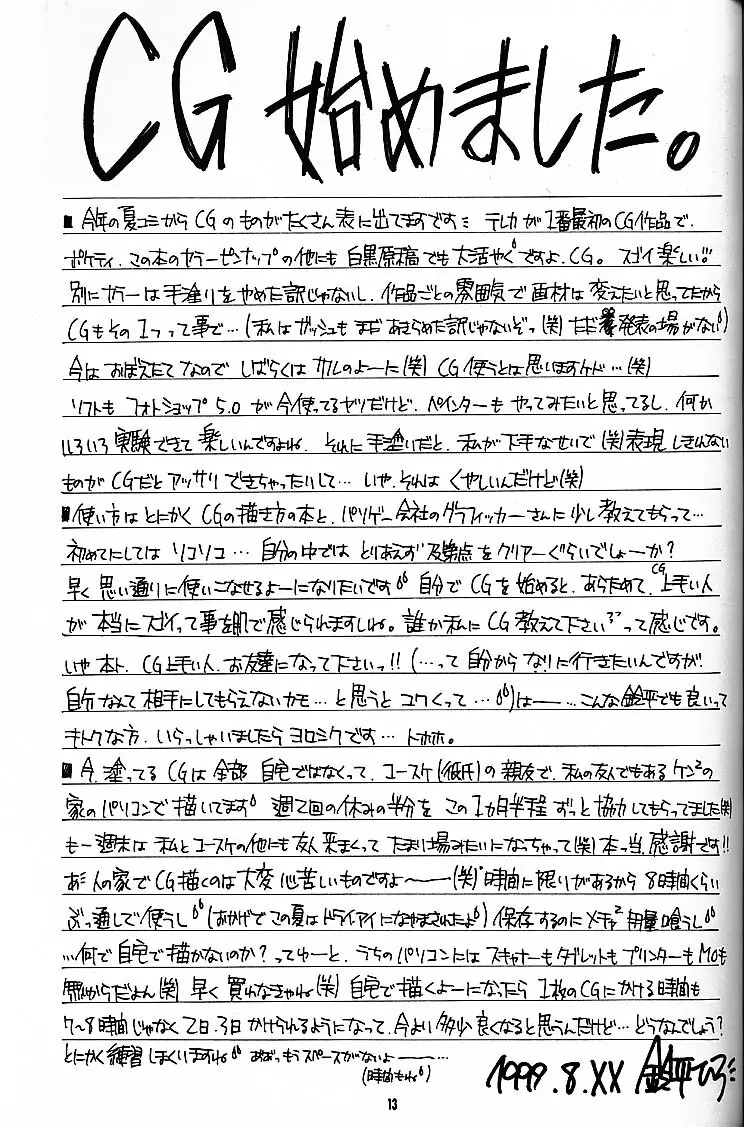 CG 始めました。
■今年の夏コミからCGのものがたくさん表に出てますです ミ テレカが1番最初のCG作品で、
ポケティ、この本のカラーピンナップの他にも白黒原稿でも大活やくですよ、CG。スゴイ楽しい!!
別にカラーは手塗りをやめた訳じゃないし、作品ごとの雰囲気で画材は変えたいと思ってたから
CGもその1つって事で…(私はガッシュもまだあきらめた訳じゃないぞっ(笑)ただ発表の場がない)
今はおぼえたてなのでしばらくはサルのよーに(笑)CG使うとは思いますケド…(笑)
ソフトもフォトショップ5.0が今使ってるヤツだけど、ペインターもやってみたいと思ってるし、何か
いろいろ実験できて楽しいんですよね、それに手塗いだと、私が下手なせいで(笑)表現しきれない
ものがCGだとアッサリできちゃったいして…いや、それはくやしいんだけど(笑)
■使い方はとにかくCGの描き方の本と、パソゲー会社のグラフィッカーさんに少し教えてもらって…
初めてにしてはソコソコ…自分の中ではとりあえず及第点をクリアーぐらいでしょーか?
早く思い通りに使いこなせるよーになりたいです 自分でCGを始めると、あらためて、CG上手い人
が本当にスゴイって事を肌で感じられますしね。誰か私にCG教えて下さいって感じです。
いや本ト、CG上手い人、お友達になって下さいっ!!(…って自分からなりに行きたいんですが、
自分なんて相手にしてもらえないかモ…と思うとコワくって…)は――…こんな鈴平でも良いって
キトクな方、いらっしゃいましたらヨロシクです…トホホ。
■今、塗ってるCGは全部自宅ではなくって、コースケ(彼氏)の親友で、私の友人でもあるケンの
家のパソコンで描いてます 週2回の休みの半分をこの1カ月半程ずっと協力してもらってました(笑)
も一週末は私とコースケの他にも友人来まくってたまり場みたいになっちゃって(笑)本っ当、感謝です!!
人の家でCG描くのは大変心苦しいものですよ〜――(笑)時間に限りがあるから8時間くらい
ぶっ通しで使うし(おかげでこの夏はドライアイになやまされたよ)保存するのにメチャ2用量喰うし
…何で自宅で描かないのか?ってゆーと、うちのパソコンにはスキャナーもタブレットもプリンターもMOも
無いからだよん(笑)早く買わなきゃね(笑)自宅で描くよーになったら1枚のCGにかける時間も
7〜8時間じゃなく2日、3日かけられるようになって、今よい多少良くなると思うんだけど…どうなんでしょう?
とにかく練習しまくいますね あおっもうスペースがないよ――…
(時間もね)
1999.8.XX 鈴平ひろ
13